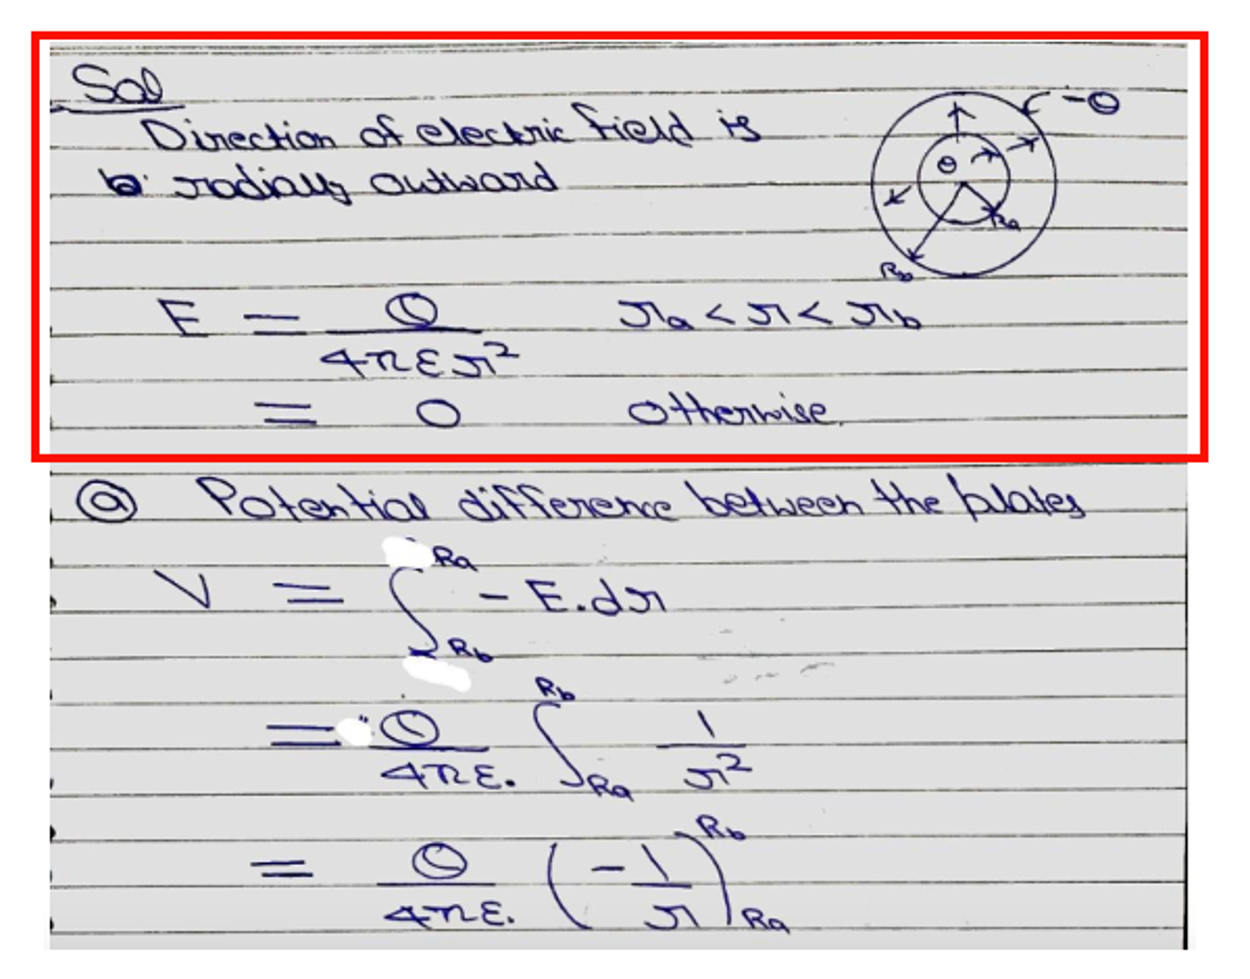 Sol
Direction of electric field is
radially outward
-Q
Q
Ra
Rb
E = Q / 4πεr² ra < r < rb
= 0 otherwise.
(a) Potential difference between the plates
V = ∫_{Rb}^{Ra} - E.dr
= Q / 4πε. ∫_{Ra}^{Rb} 1 / r²
= Q / 4πε. (-1 / r)_{Ra}^{Rb}